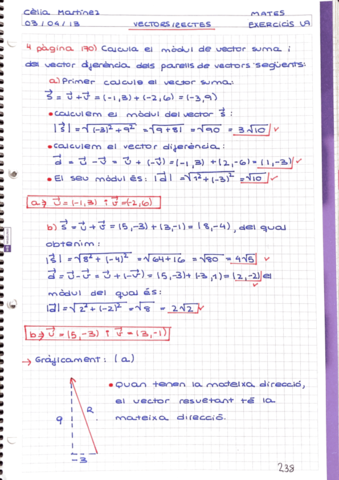 Cèlia Martínez MATES
03/04/13 VECTORS I RECTES EXERCICIS U9
4 pàgina 190) Calcula el mòdul de vector suma i
del vector diferència dels parells de vectors següents:
a) Primer calculo el vector suma:
S⃗ = u⃗ + v⃗ = (-1, 3) + (-2, 6) = (-3, 9)
• Calculem el mòdul del vector s⃗:
|s⃗| = √(-3)² + 9² = √9 + 81 = √90 = 3√10
• Calculem el vector diferència:
d⃗ = u⃗ - v⃗ = u⃗ + (-v⃗) = (-1, 3) + (2, -6) = (1, -3)
• El seu mòdul és: |d⃗| = √1² + (-3)² = √10
a → u⃗ = (-1, 3) i v⃗ = (-2, 6)
b) s⃗ = u⃗ + v⃗ = (5, -3) + (3, -1) = (8, -4), del qual
obtenim:
|s⃗| = √8² + (-4)² = √64 + 16 = √80 = 4√5
d⃗ = u⃗ - v⃗ = u⃗ + (-v⃗) = (5, -3) + (-3, 1) = (2, -2) el
mòdul del qual és:
|d⃗| = √2² + (-2)² = √8 = 2√2
b → u⃗ = (5, -3) i v⃗ = (3, -1)
→ Gràficament: (a)
• Quan tenen la mateixa direcció,
el vector resultant té la
mateixa direcció.
9 R
-3
238